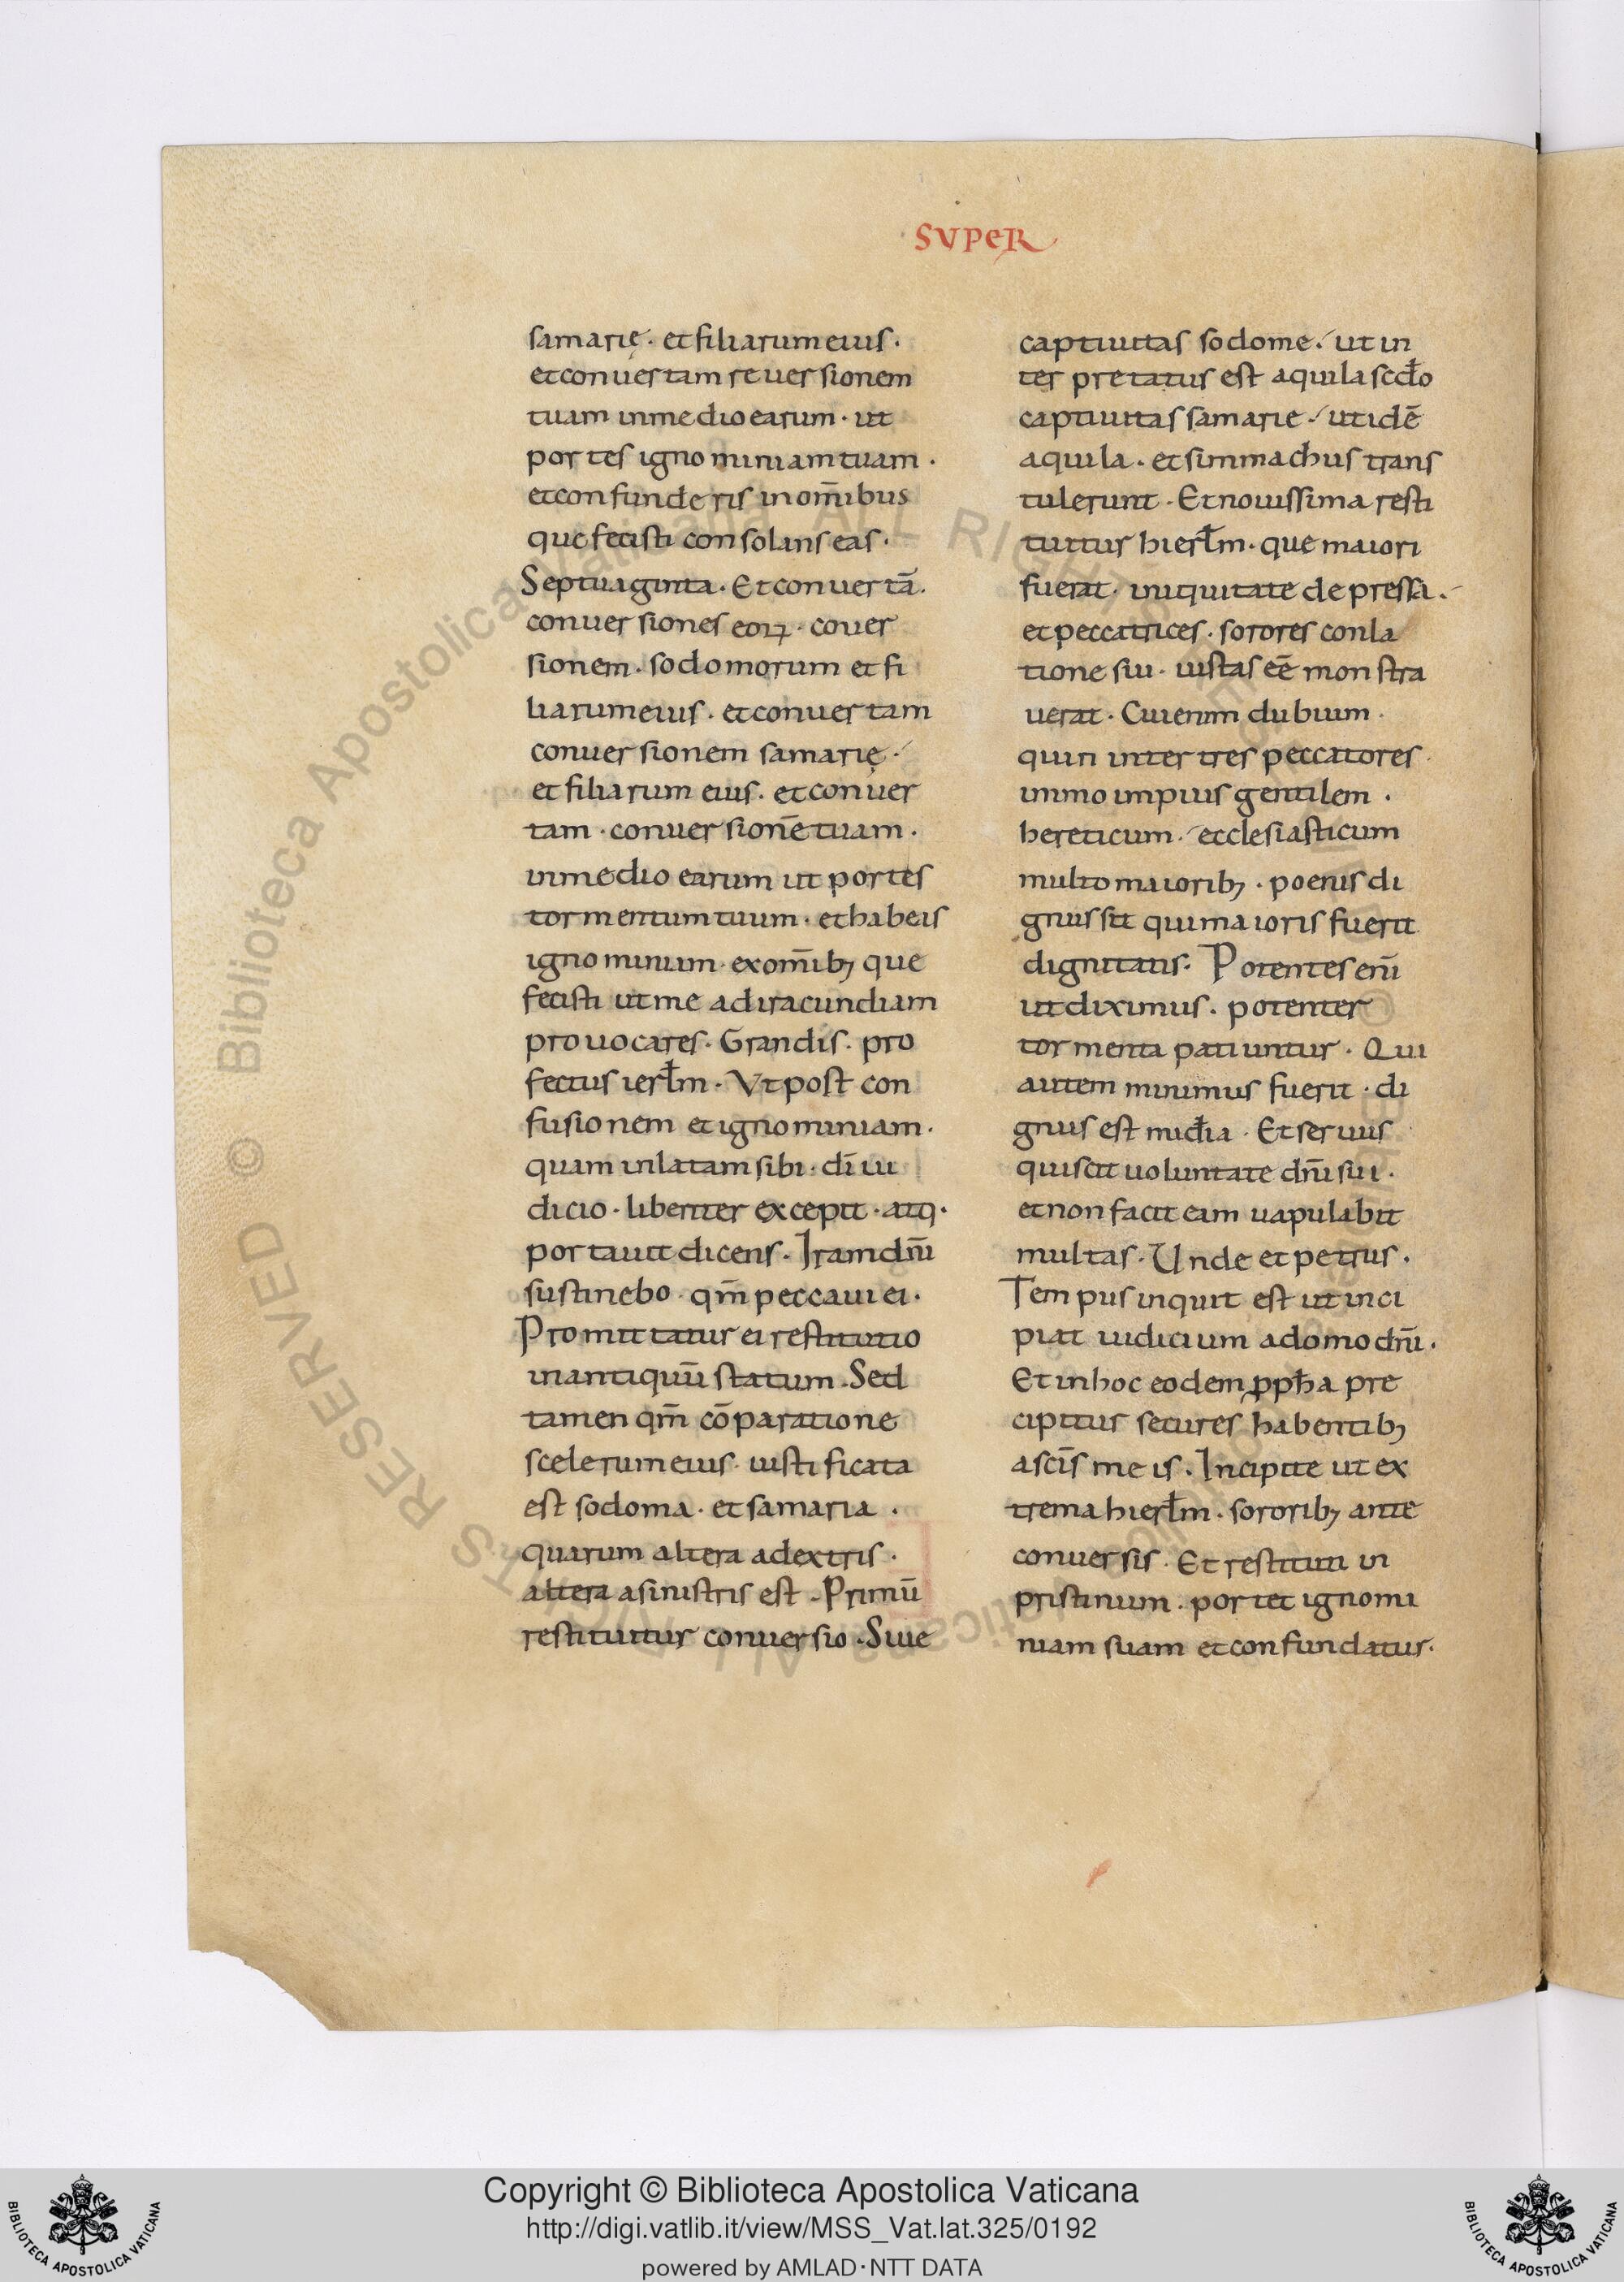 SVPER
samarię · et filiarum eius ·
et convertam reversionem
tuam in medio earum · ut
portes ignominiam tuam ·
et confunderis in om̅ibus
que fecisti consolans eas ·
Septuaginta · Et convertā ·
conversiones eoꝝ · cover
sionem · sodomorum et fi
liarum eius · et convertam
conversionem samarię ·
et filiarum eius · et conver
tam · conversionē tuam ·
in medio earum ut portes
tormentum tuum · et habeis
ignominium · ex om̅ibꝫ que
fecisti ut me ad iracundiam
provocares · Grandis · pro
fectus ierl̅m · Ut post con
fusionem et ignominiam ·
quam inlatam sibi · dī iu
dicio · libenter excepit · atq ·
portavit dicens · Iram dn̅i
sustinebo · qm̅ peccavi ei ·
Promittatur ei restitutio
in antiquū statum · Sed
tamen qm̅ cōparatione
scelerum eius · iustificata
est sodoma · et samaria ·
quarum altera a dextris ·
altera a sinistris est · Primū
restituitur conversio · Sive
captivitas sodome · ut in
terpretatus est aquila scd̅o
captivitas samarie · ut idē
aquila · et simmachus trans
tulerunt · Et novissima resti
tuitur hierl̅m · que maiori
fuerat · iniquitate depressa ·
et peccatrices · sorores conla
tione sui · iustas eē monstra
verat · Cui enim dubium ·
quin inter tres peccatores ·
immo impius gentilem ·
hereticum · ecclesiasticum
multo maioribꝫ · poenis di
gnus sit qui maioris fuerit
dignitatis · Potentes eni̅
ut diximus · potenter
tormenta patiuntur · Qui
autem minimus fuerit · di
gnus est mid̅ia · Et servus
qui scit voluntate dn̅i sui ·
et non facit eam vapulabit
multas · Unde et petrus ·
Tempus inquit est ut inci
piat iudicium a domo dn̅i ·
Et in hoc eodem ꝓph̅a pre
cipitur secures habentibꝫ
a sc̅is meis · Incipite ut ex
trema hierl̅m · sororibꝫ ante
conversis · Et restituti in
pristinum · portet ignomi
niam suam et confundatur ·
Copyright © Biblioteca Apostolica Vaticana
http://digi.vatlib.it/view/MSS_Vat.lat.325/0192
powered by AMLAD·NTT DATA
BIBLIOTECA APOSTOLICA VATICANA
BIBLIOTECA APOSTOLICA VATICANA